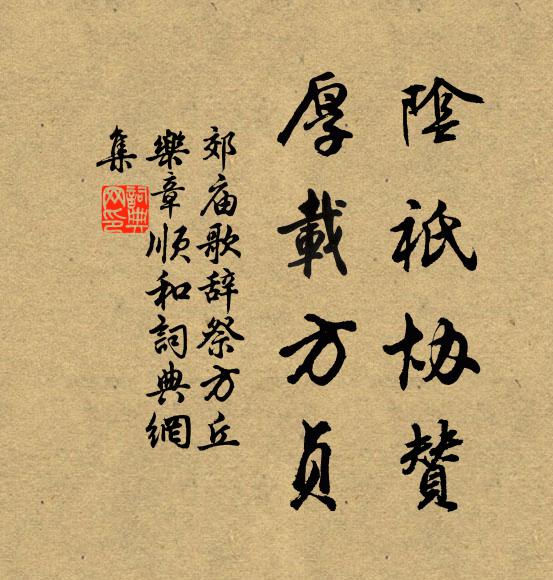 陰祇协贊
厚載方貞
郊庙歌辞祭方丘
樂章順和詞典網
集
詞典
网印